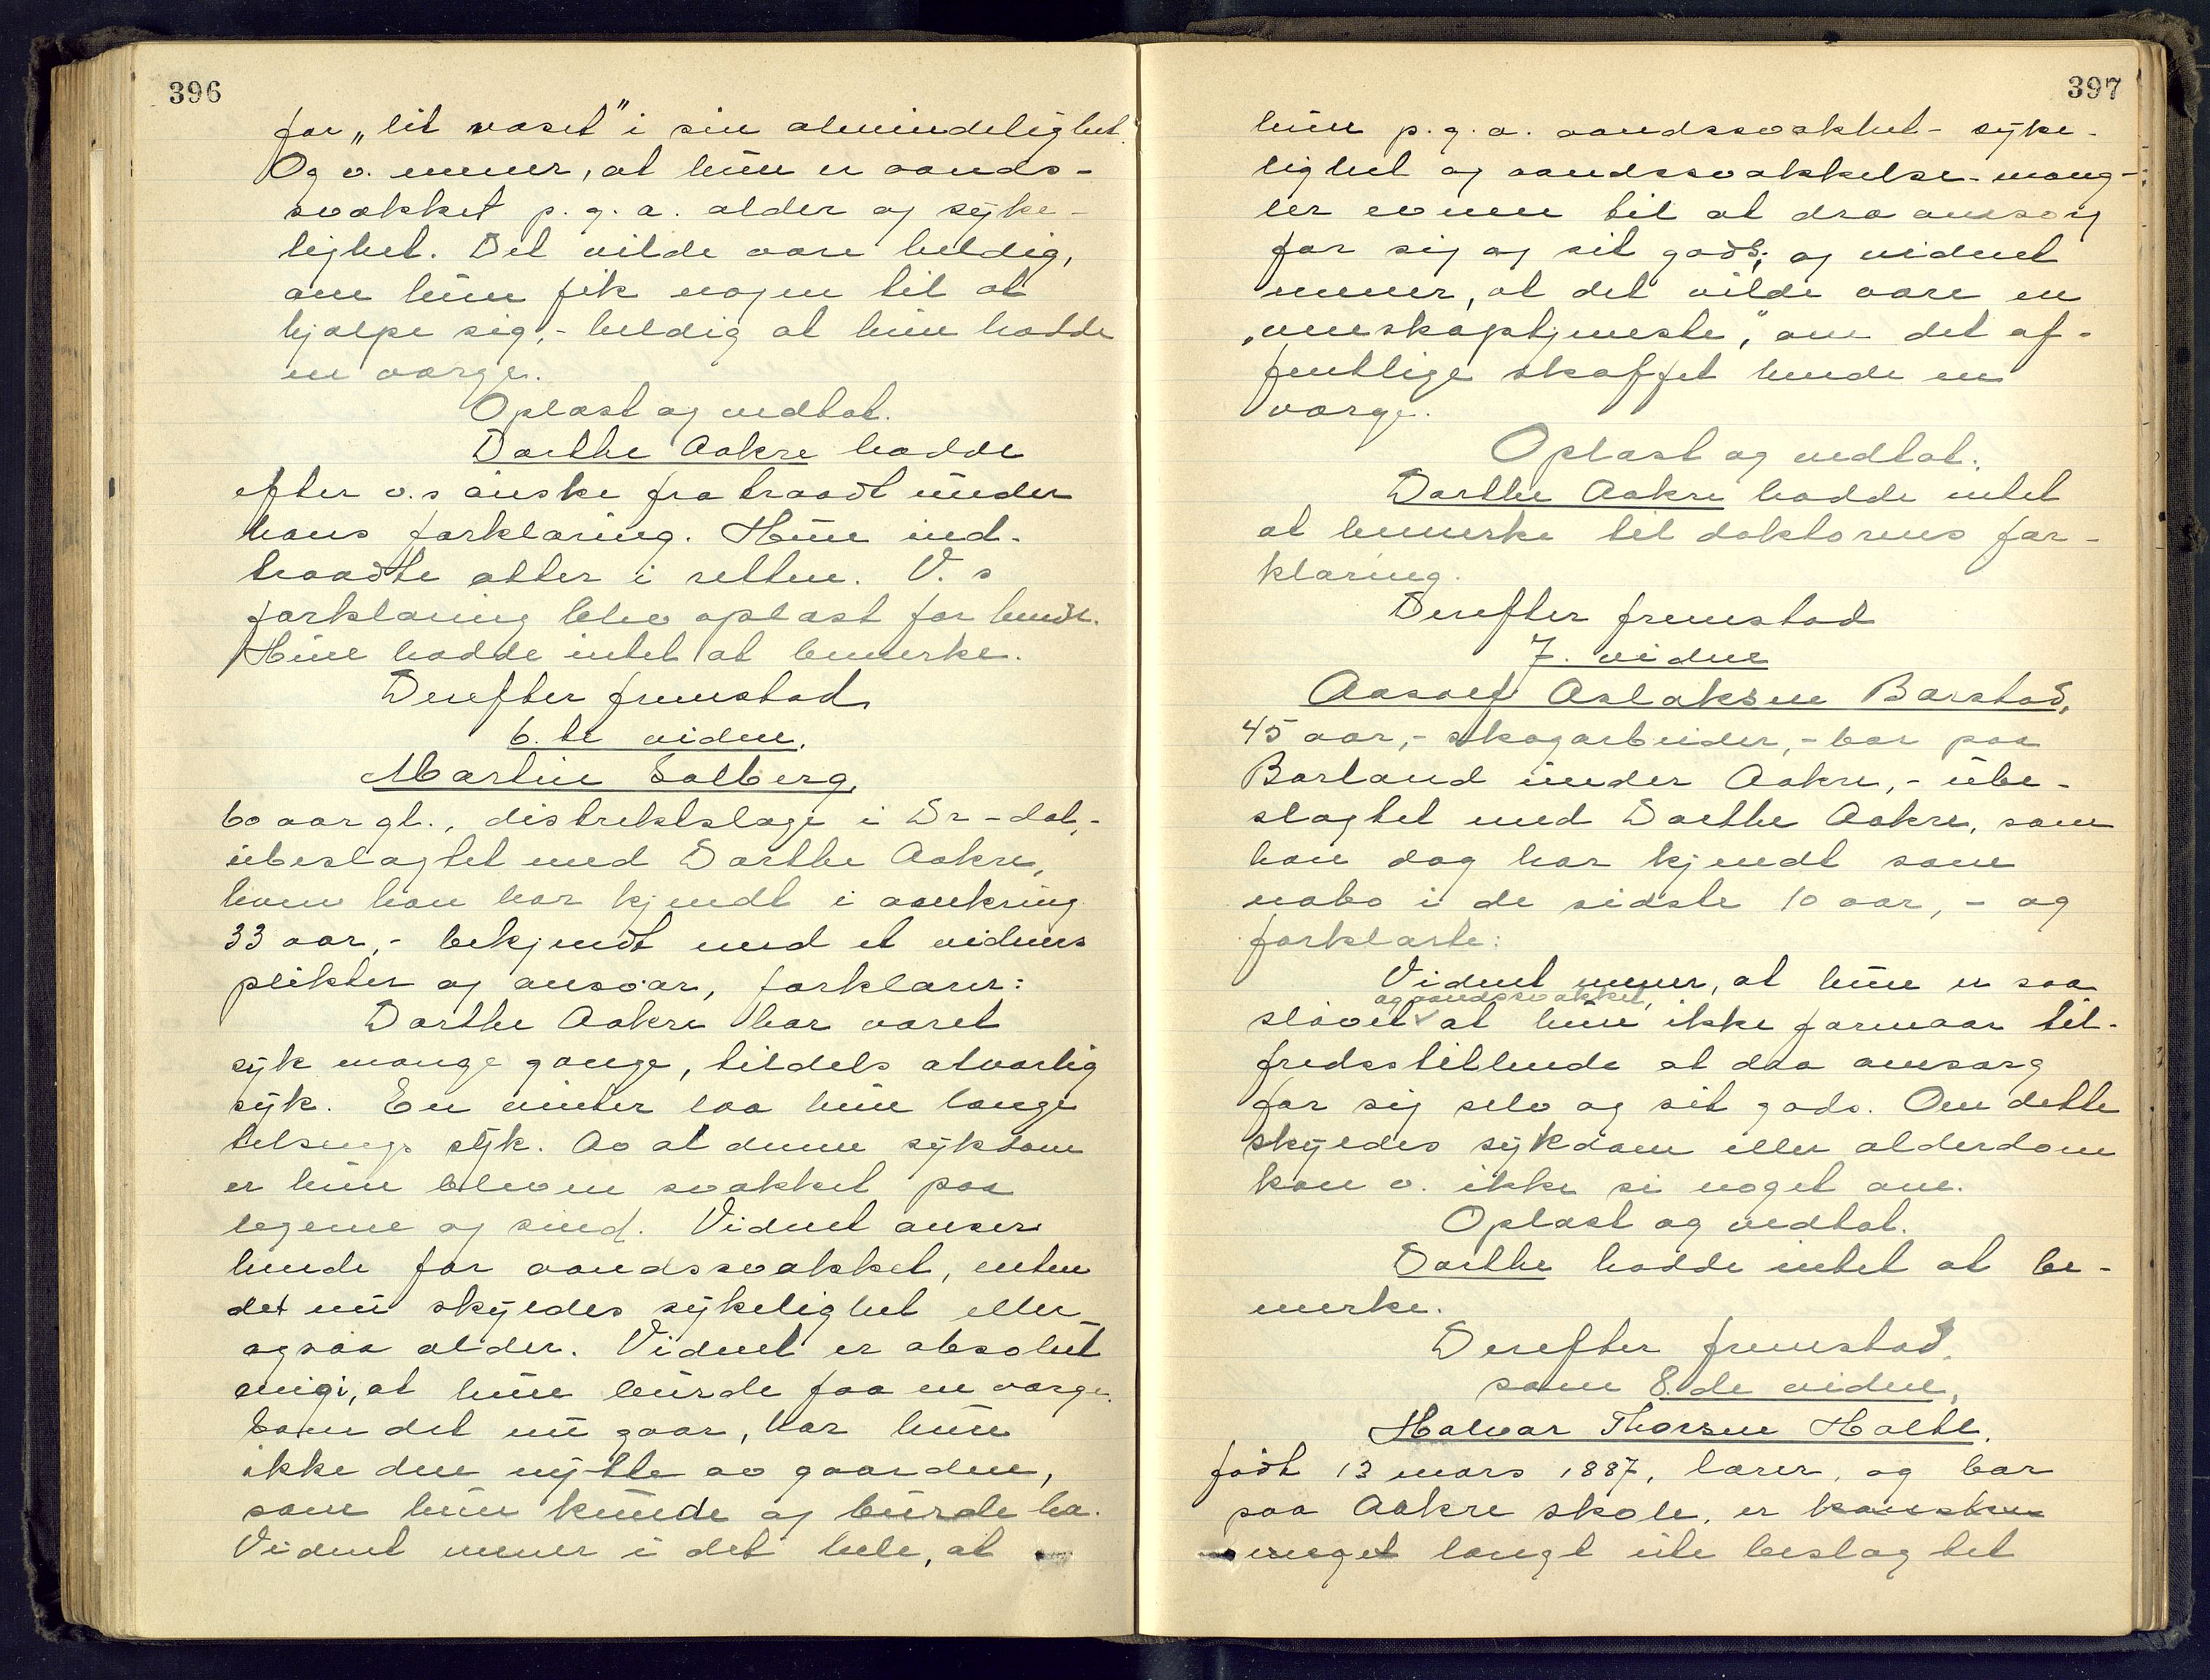 396
for „lit raset" i sin almindelighet.
Og v. mener, at hun er aands-
svækket p. g. a. alder og syke-
lighet. Det vilde være heldig,
om hun fik nogen til at
hjælpe sig, - heldig at hun hadde
en værge.
Oplæst og vedtat.
Dorthe Aakre hadde
efter v.s ønske fratraadt under
hans forklaring. Hun ind-
traadte atter i retten. V. s
forklaring blev oplæst for hende.
Hun hadde intet at bemerke.
Derefter fremstod
6. te vidne,
Martin Solberg,
60 aar gl., distriktslæge i Dr-dal,-
ubeslægtet med Dorthe Aakre,
hvem han har kjendt i omkring
33 aar, - bekjendt med et vidnes
plikter og ansvar, forklarer:
Dorthe Aakre har været
syk mange gange, tildels alvorlig
syk. En vinter laa hun længe
tilsengs syk. Av al denne sykdom
er hun bleven svækket paa
legeme og sind. Vidnet anser
hende for aandssvækket, enten
det nu skyldes sykelighet eller
ogsaa alder. Vidnet er absolut
enig i, at hun burde faa en værge.
Som det nu gaar, har hun
ikke den nytte av gaarden,
som hun kunde og burde ha.
Vidnet mener i det hele, at
397
hun p. g. a. aandssvakhet - syke-
lighet og aandssvækkelse - mang-
ler evnen til at dra omsorg
for sig og sit gods; og vidnet
mener, at det vilde være en
„venskapstjeneste," om det of-
fentlige skaffet hende en
værge.
Oplæst og vedtat.
Dorthe Aakre hadde intet
at bemerke til doktorens for-
klaring.
Derefter fremstod
7. vidne
Aasolf Aslaksen Barstad,
45 aar, - skogarbeider, - bor paa
Borland under Aakre, - ube-
slægtet med Dorthe Aakre, som
han dog har kjendt som
nabo i de sidste 10 aar, - og
forklarte:
Vidnet mener, at hun er saa
og aandssvækket,
sløvet at hun ikke formaar til-
fredsstillende at dra omsorg
for sig selv og sit gods. Om dette
skyldes sykdom eller alderdom
kan v. ikke si noget om.
Oplæst og vedtat.
Dorthe hadde intet at be-
merke.
Derefter fremstod
som 8. de vidne,
Halvor Thorsen Holte,
født 13 mars 1887, lærer, og bor
paa Aakre skole, er kanskæ
meget langt ute beslægtet